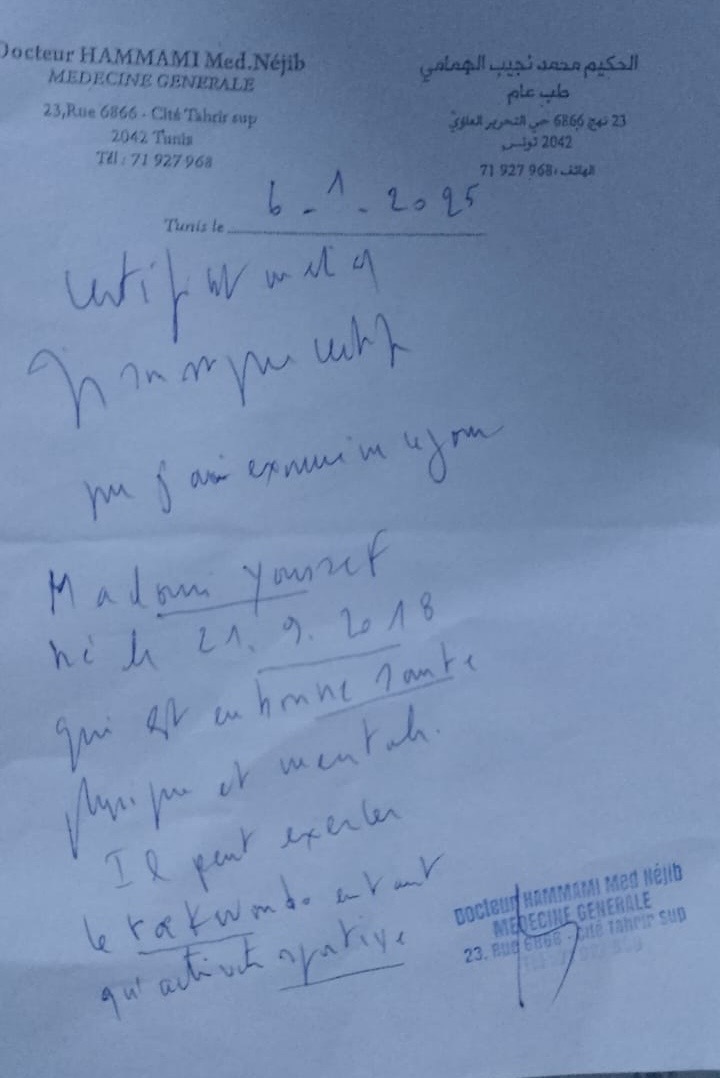 Docteur HAMMAMI Med.Néjib
MEDECINE GENERALE
23,Rue 6866 - Cité Tahrir sup
2042 Tunis
Tél : 71 927 968
الحكيم محمد نجيب الهمامي
طب عام
23 نهج 6866 حي التحرير العلوي
2042 تونس
الهاتف : 71 927 968
Tunis le 6 - 1 - 2025
Certificat medical
certifie
que j'ai examiné ce jour
Youssef
né le 21. 9. 2018
qui est en bonne santé
physique et mentale.
Il peut exercer
le taekwondo en tant
qu'activité sportive
Docteur HAMMAMI Med Néjib
MEDECINE GENERALE
23, Rue 6866 - Cité Tahrir sup